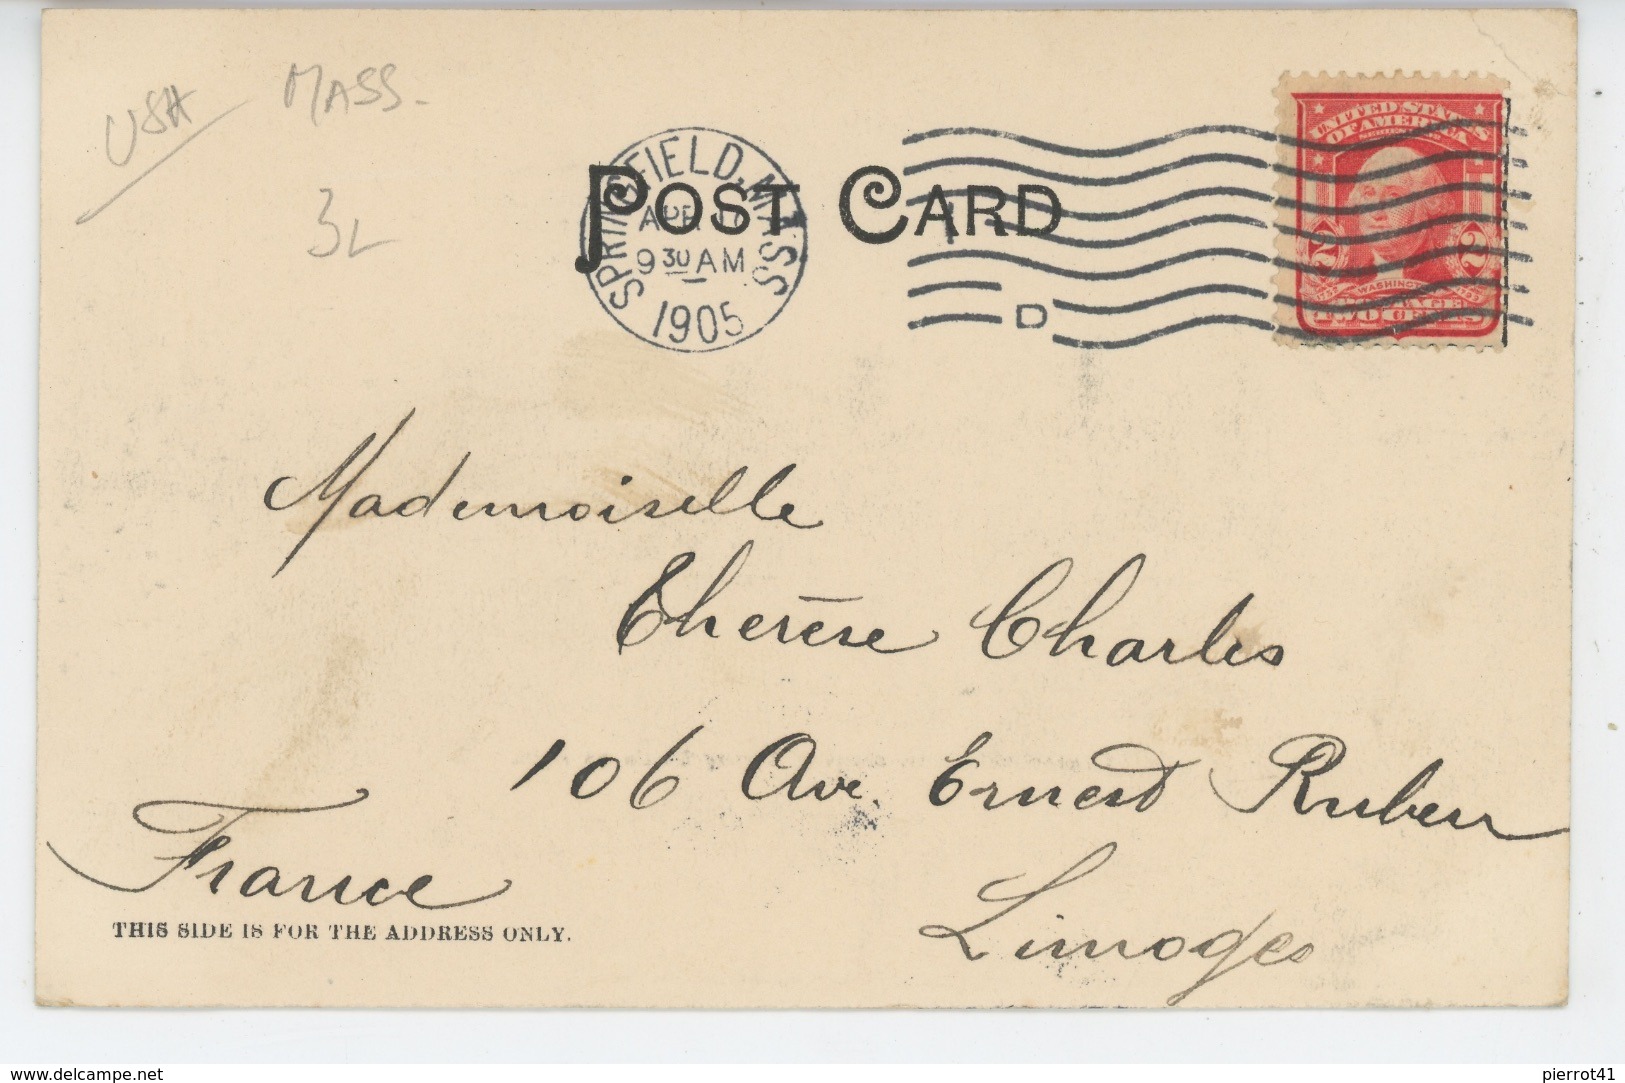 USA MASS.
3L
SPRINGFIELD, MASS
APR 17
9 30 AM
1905
D
POST CARD
UNITED STATES
OF AMERICA
2 2
WASHINGTON
TWO CENTS
Mademoiselle
Thérèse Charles
106 Ave Ernest Ruben
France
Limoges
THIS SIDE IS FOR THE ADDRESS ONLY.
www.delcampe.net
pierrot41